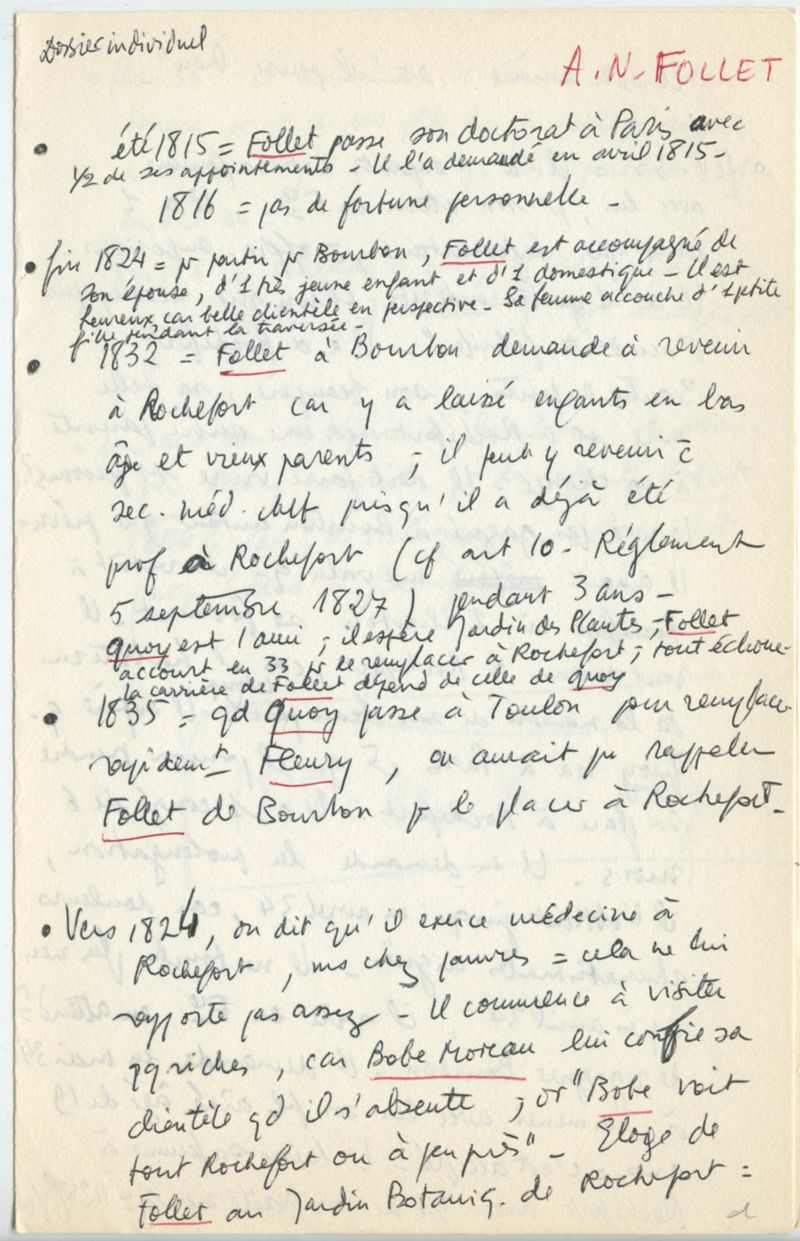 Dossier individuel
A.N. FOLLET
• été 1815 = Follet passe son doctorat à Paris avec
1/2 de ses appointements - Il l'a demandé en avril 1815 -
1816 = pas de fortune personnelle -
• fin 1824 = pr partir pr Bourbon, Follet est accompagné de
son épouse, d'1 très jeune enfant et d'1 domestique - Il est
heureux, car belle clientèle en perspective - Sa femme accouche d'1 petite
fille pendant la traversée -
• 1832 = Follet à Bourbon demande à revenir
à Rochefort car y a laissé enfants en bas
âge et vieux parents ; il peut y revenir c̄
sec. méd. chef puisqu'il a déjà été
prof à Rochefort (cf art 10 - Réglement
5 septembre 1827) pendant 3 ans -
Quoy est 1 ami ; il espère Jardin des Plantes ; Follet
accourt en 33 pr le remplacer à Rochefort ; tout échoue -
la carrière de Follet dépend de celle de Quoy
• 1835 = qd Quoy passe à Toulon pour remplacer
rapidemt Fleury, on aurait pu rappeler
Follet de Bourbon pr le placer à Rochefort -
• Vers 1824, on dit qu'il exerce médecine à
Rochefort, ms chez pauvres = cela ne lui
rapporte pas assez - Il commence à visiter
qq riches, car Bobe Moreau lui confie sa
clientèle qd il s'absente ; or "Bobe voit
tout Rochefort ou à peu près" - Eloge de
Follet au Jardin Botaniq. de Rochefort =